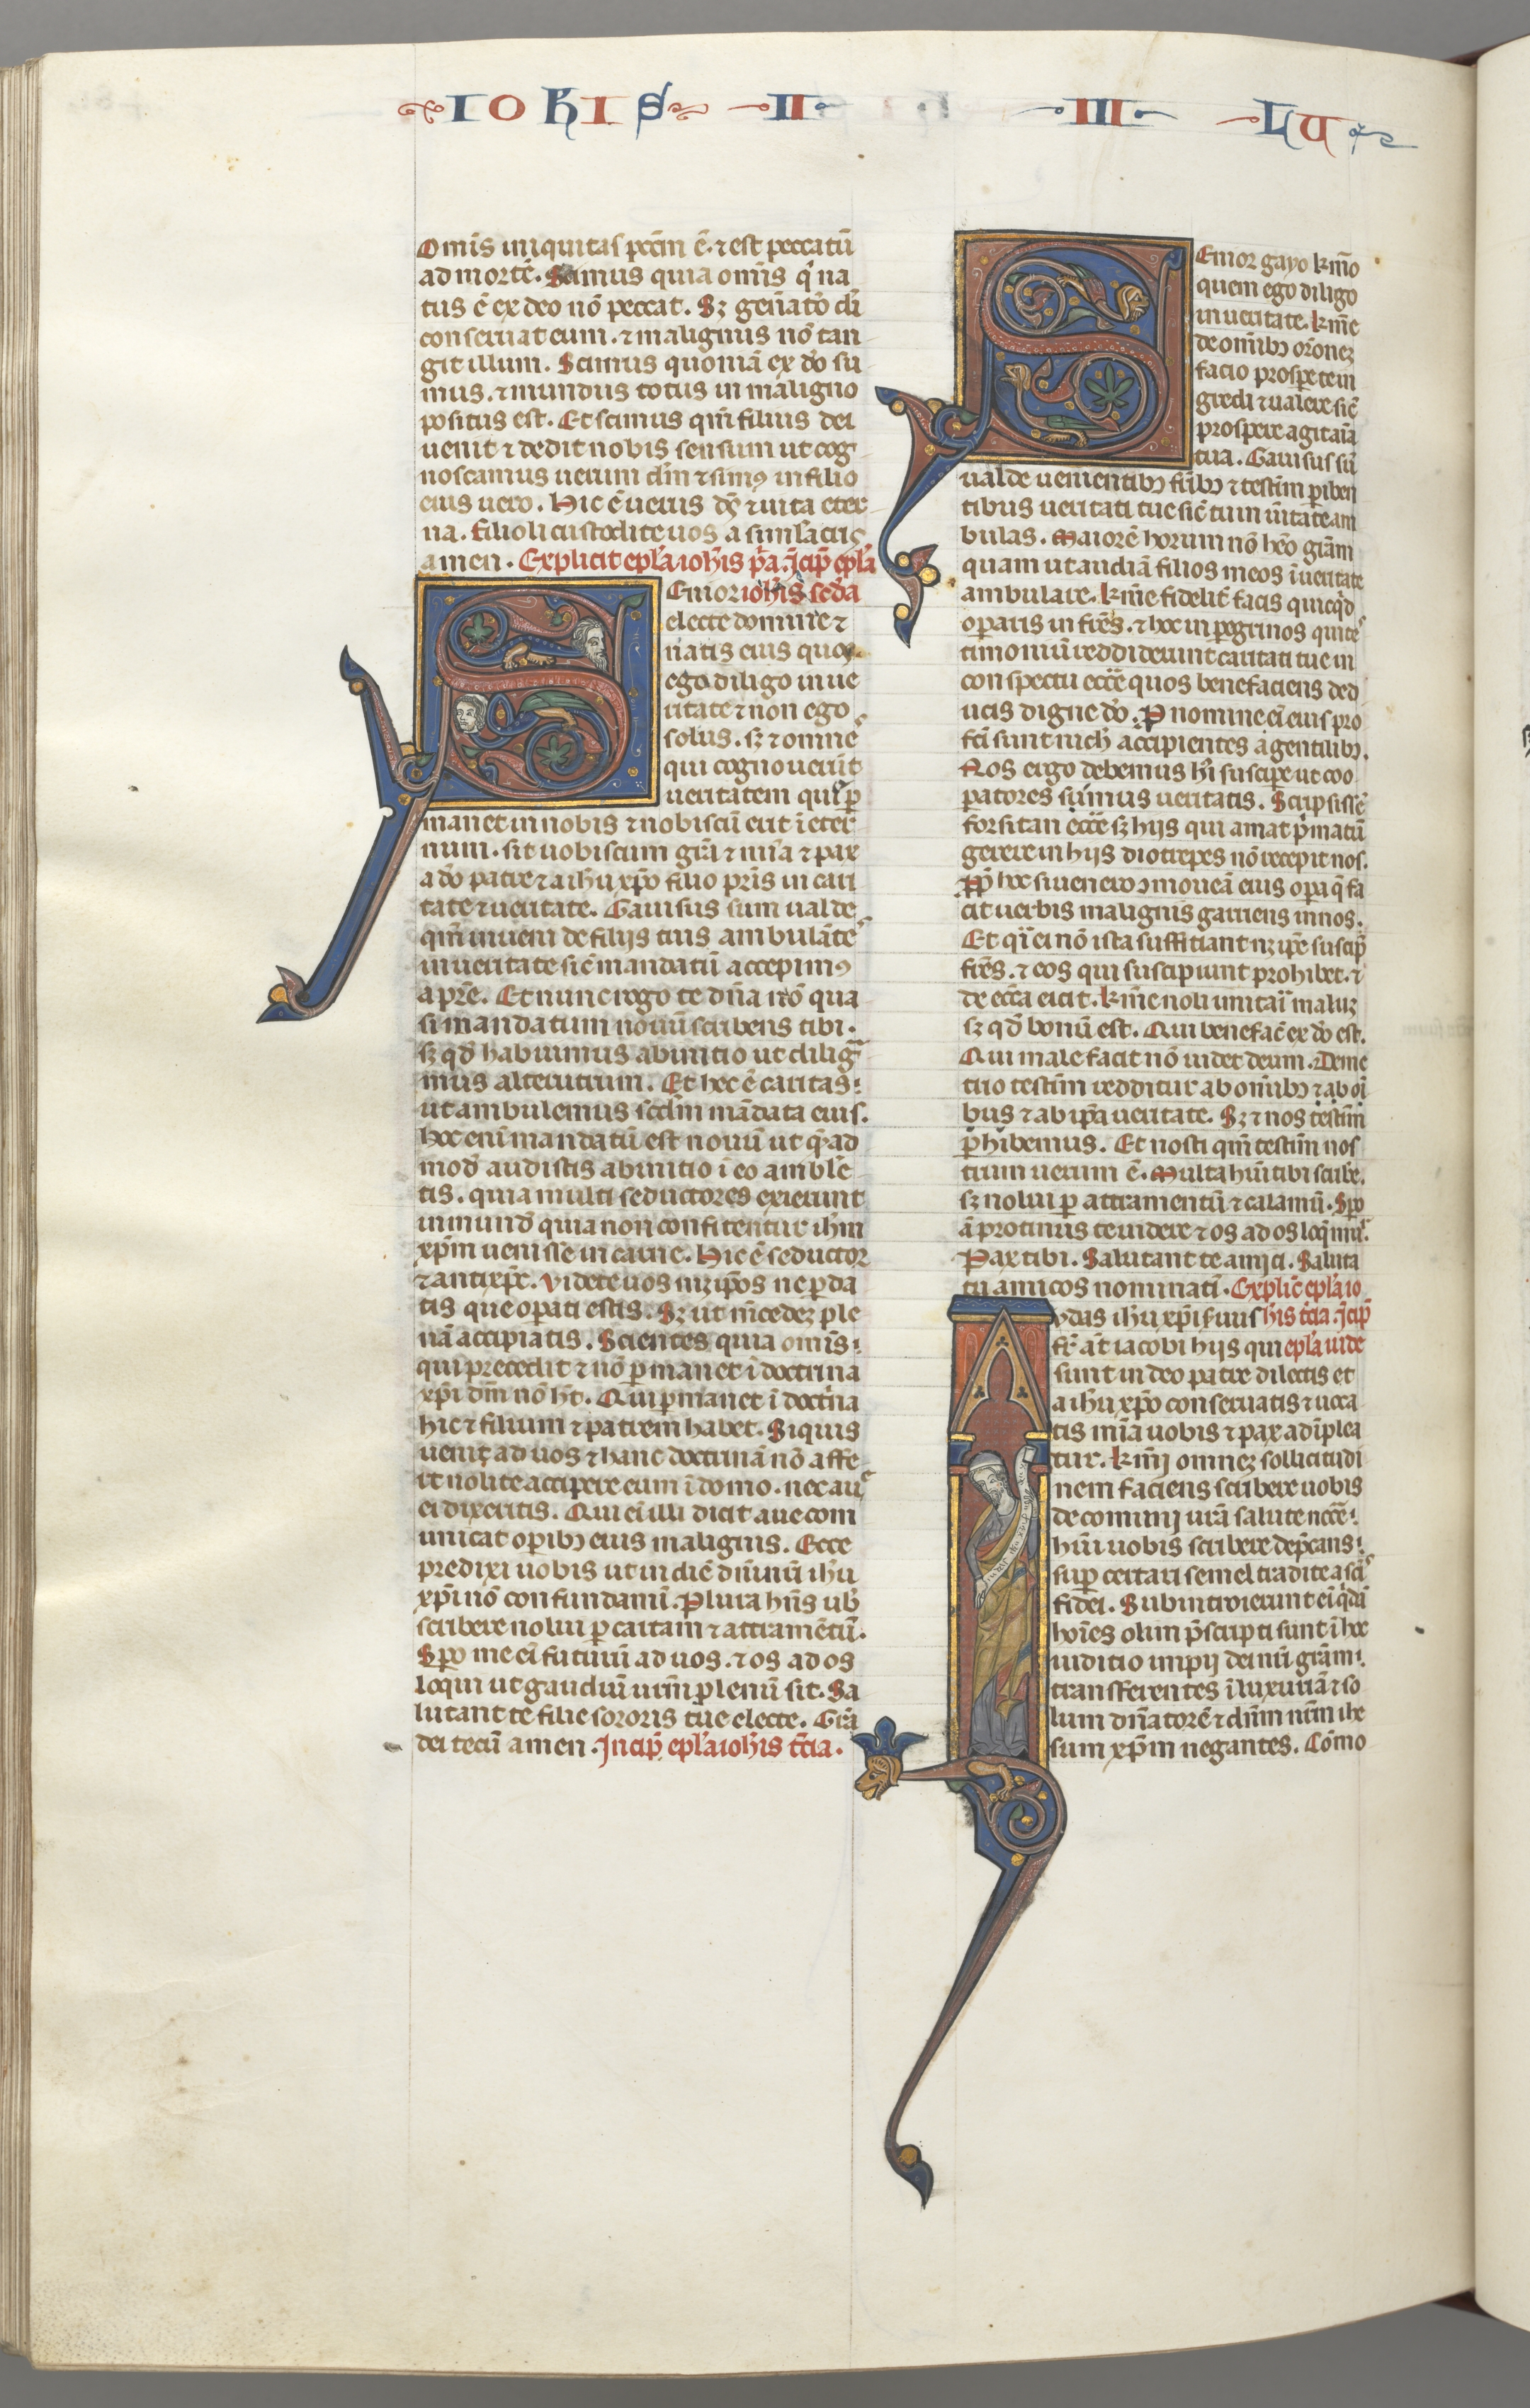 IOHIS II III LU
Om̄s iniquitas pcc̄m ē. ⁊ est peccatū
ad mortē. Scimus quia om̄s q̇ na
tus ē ex deo nō peccat. Sȝ gen̄atō di
conseruat eum. ⁊ malignus nō tan
git illum. Scimus quoniā ex dō su
mus. ⁊ mundus totus in maligno
positus est. Et scimus qm̄ filius dei
uenit ⁊ dedit nobis sensum ut cog
noscamus uerum dm̄ ⁊ simꝰ in filio
eius uero. Hic ē uerus ds̄ ⁊ uita eter
na. Filioli custodite uos a simlacris
amen. Explicit epl̄a ioh̄is p̄a. Jncip̄ epl̄a
Enior ioh̄is sc̄da
electe domine ⁊
natis eius quos
ego diligo in ue
ritate ⁊ non ego
solus. sȝ ⁊ omnes
qui cognouerūt
ueritatem qui ꝑ
manet in nobis ⁊ nobiscū erit ī eter
num. sit uobiscum grā ⁊ mīa ⁊ pax
a dō patre ⁊ a ih̄u xp̄o filio pr̄is in cari
tate ⁊ ueritate. Gauisus sum ualde
qm̄ inueni de filijs tuis ambulātes
in ueritate sic̄ mandatū accepimꝰ
a pr̄e. Et nunc rogo te dn̄a nō qua
si mandatum nouū scribens tibi.
sȝ qd̄ habuimus ab initio ut diliga
mus alterutrum. Et hec ē caritas
ut ambulemus scd̄m mādata eius.
Hoc enī mandatū est nouū ut q̄ad
mod̄ audistis ab initio ī eo amble
tis. quia multi seductores exierunt
in mund̄ quia non confitentur ih̄m
xp̄m uenisse in carne. Hic ē seductor
⁊ antixp̄c. Videte uos m̄ip̄os ne ꝑda
tis que opati estis. Sȝ ut m̄cedeȝ ple
nā accipiatis. Scientes quia om̄is
qui precedit ⁊ nō ꝑmanet ī doctrina
xp̄i dm̄ nō h̄t. Qui ꝑmanet ī doct'na
hic ⁊ filium ⁊ patrem habet. Siquis
uenit ad uos ⁊ hanc doctrinā nō affe
rt nolite accipere eum ī domo. nec aue
ei dixeritis. Qui eī illi dicit aue com
unicat opibꝫ eius malignis. Ecce
predixi uobis ut in diē dn̄i nr̄i ih̄u
xp̄i nō confundami. Plura hn̄s ub̄
scribere nolui ꝑ cartam ⁊ attramētū.
Spo me eī futurū ad uos. ⁊ os ad os
loqui ut gaudiū urm̄ plenū sit. Sa
lutant te filie sororis tue electe. Grā
dei tecū amen. Jncip̄ epl̄a ioh̄is t̄cia.
Enior gayo km̄o
quem ego diligo
in ueritate. km̄e
de om̄ibꝫ or̄oneȝ
facio prospe te in
gredi ⁊ ualere sic̄
prospere agit aīa
tua. Gauisus sū
ualde uenientibꝫ fr̄ibꝫ ⁊ testim̄ ꝑiben
tibus ueritati tue sic̄ tu in ūitate am
bulas. Maiorē horum nō hēo grām
quam ut audiā filios meos ī ueritate
ambulare. km̄e fidelit̄ facis quicqd̄
operaris in fr̄es. ⁊ hoc in pegrinos qui tes
timoniū reddiderunt caritati tue in
conspectu ecc̄e quos benefaciens ded
ucis digne dō. P nomine eī eius pro
fc̄i sunt nich̄ accipientes a gentilibꝫ.
Nos ergo debemus h̄i suscipe ut coo
patores simus ueritatis. Scripsissē
forsitan ecc̄e sȝ hijs qui amat p̄matū
gerere in hijs diotrepes nō recepit nos.
Pp̄ hoc si uenero ꝯmoueā eius opa q̄ fa
cit uerbis malignis garriens in nos.
Et q̄i ei nō ista sufficiant nȝ ip̄e suscip̄
fr̄es. ⁊ eos qui suscipiunt prohibet. ⁊
de ecc̄a eicit. km̄e noli imitari maluȝ
sȝ qd̄ bonū est. Qui benefac̄ ex dō est.
Qui male facit nō uidet deum. Deme
trio testim̄ redditur ab om̄ibꝫ ⁊ ab oi
bus ⁊ ab ip̄a ueritate. Sȝ ⁊ nos testim̄
ꝑhibemus. Et nosti qm̄ testim̄ nos
trum uerum ē. Multa hui tibi scribe.
sȝ nolui ꝑ attramentū ⁊ calamū. Spo
ā protinus te uidere ⁊ os ad os loqmur.
Pax tibi. Salutant te amici. Saluta
tu amicos nominatī. Explic̄ epl̄a io
ydas ih̄u xp̄i seruus his t̄cia. Jcip̄
fr̄ āt iacobi hijs qui epl̄a iude
sunt in deo patre dilectis et
a ih̄u xp̄o conseruatis ⁊ uoca
tis mīa uobis ⁊ pax adīplea
tur. km̄j omneȝ sollicitudi
nem faciens scribere uobis
de comm̄j urā salute nc̄ce
hui uobis scribere dep̄cans
sup certari semel tradite asc̄is
fidei. Subintroierunt eī qd̄ā
hoīes olim p̄scripti sunt ī hoc
iuditio impij dei nr̄i grām
transferentes ī luxuriā ⁊ so
lum dn̄atorē ⁊ dn̄m nr̄m ihe
sum xp̄m negantes. Cōmo